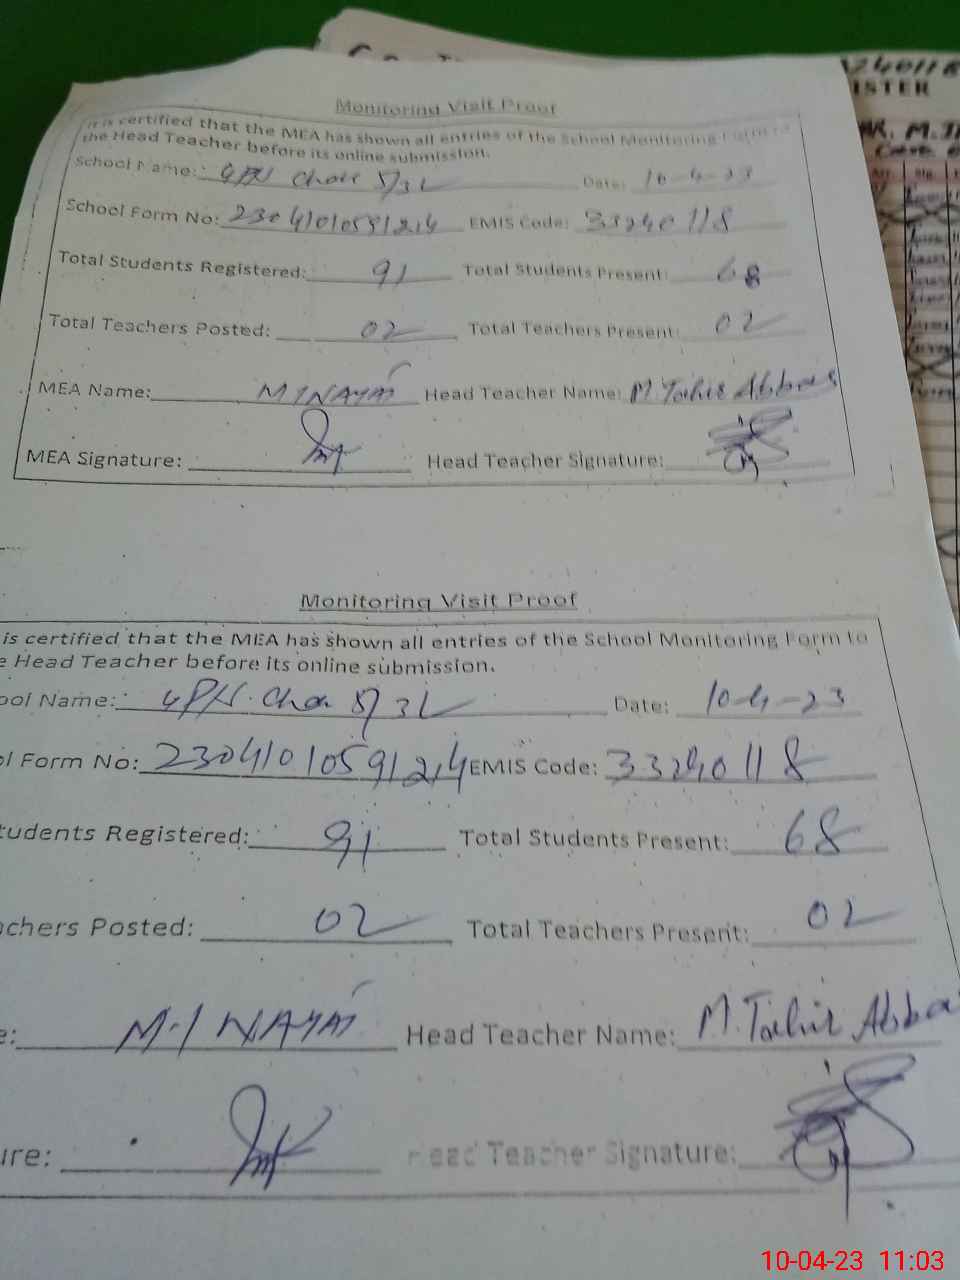 240118
ISTER
Monitoring Visit Proof
It is certified that the MEA has shown all entries of the School Monitoring Form to
the Head Teacher before its online submission.
School Name: GPS Chak 5/3L Date: 10-4-23
School Form No: 23041010591214 EMIS Code: 33240118
Total Students Registered: 91 Total Students Present: 68
Total Teachers Posted: 02 Total Teachers Present: 02
MEA Name: M INAYAT Head Teacher Name: M. Tahir Abbas
MEA Signature: Head Teacher Signature:
Monitoring Visit Proof
is certified that the MEA has shown all entries of the School Monitoring Form to
e Head Teacher before its online submission.
ool Name: GPS Chak 5/3L Date: 10-4-23
ol Form No: 23041010591214 EMIS Code: 33240118
tudents Registered: 91 Total Students Present: 68
achers Posted: 02 Total Teachers Present: 02
e: M.I NAYAT Head Teacher Name: M. Tahir Abba
ure: Head Teacher Signature:
10-04-23 11:03